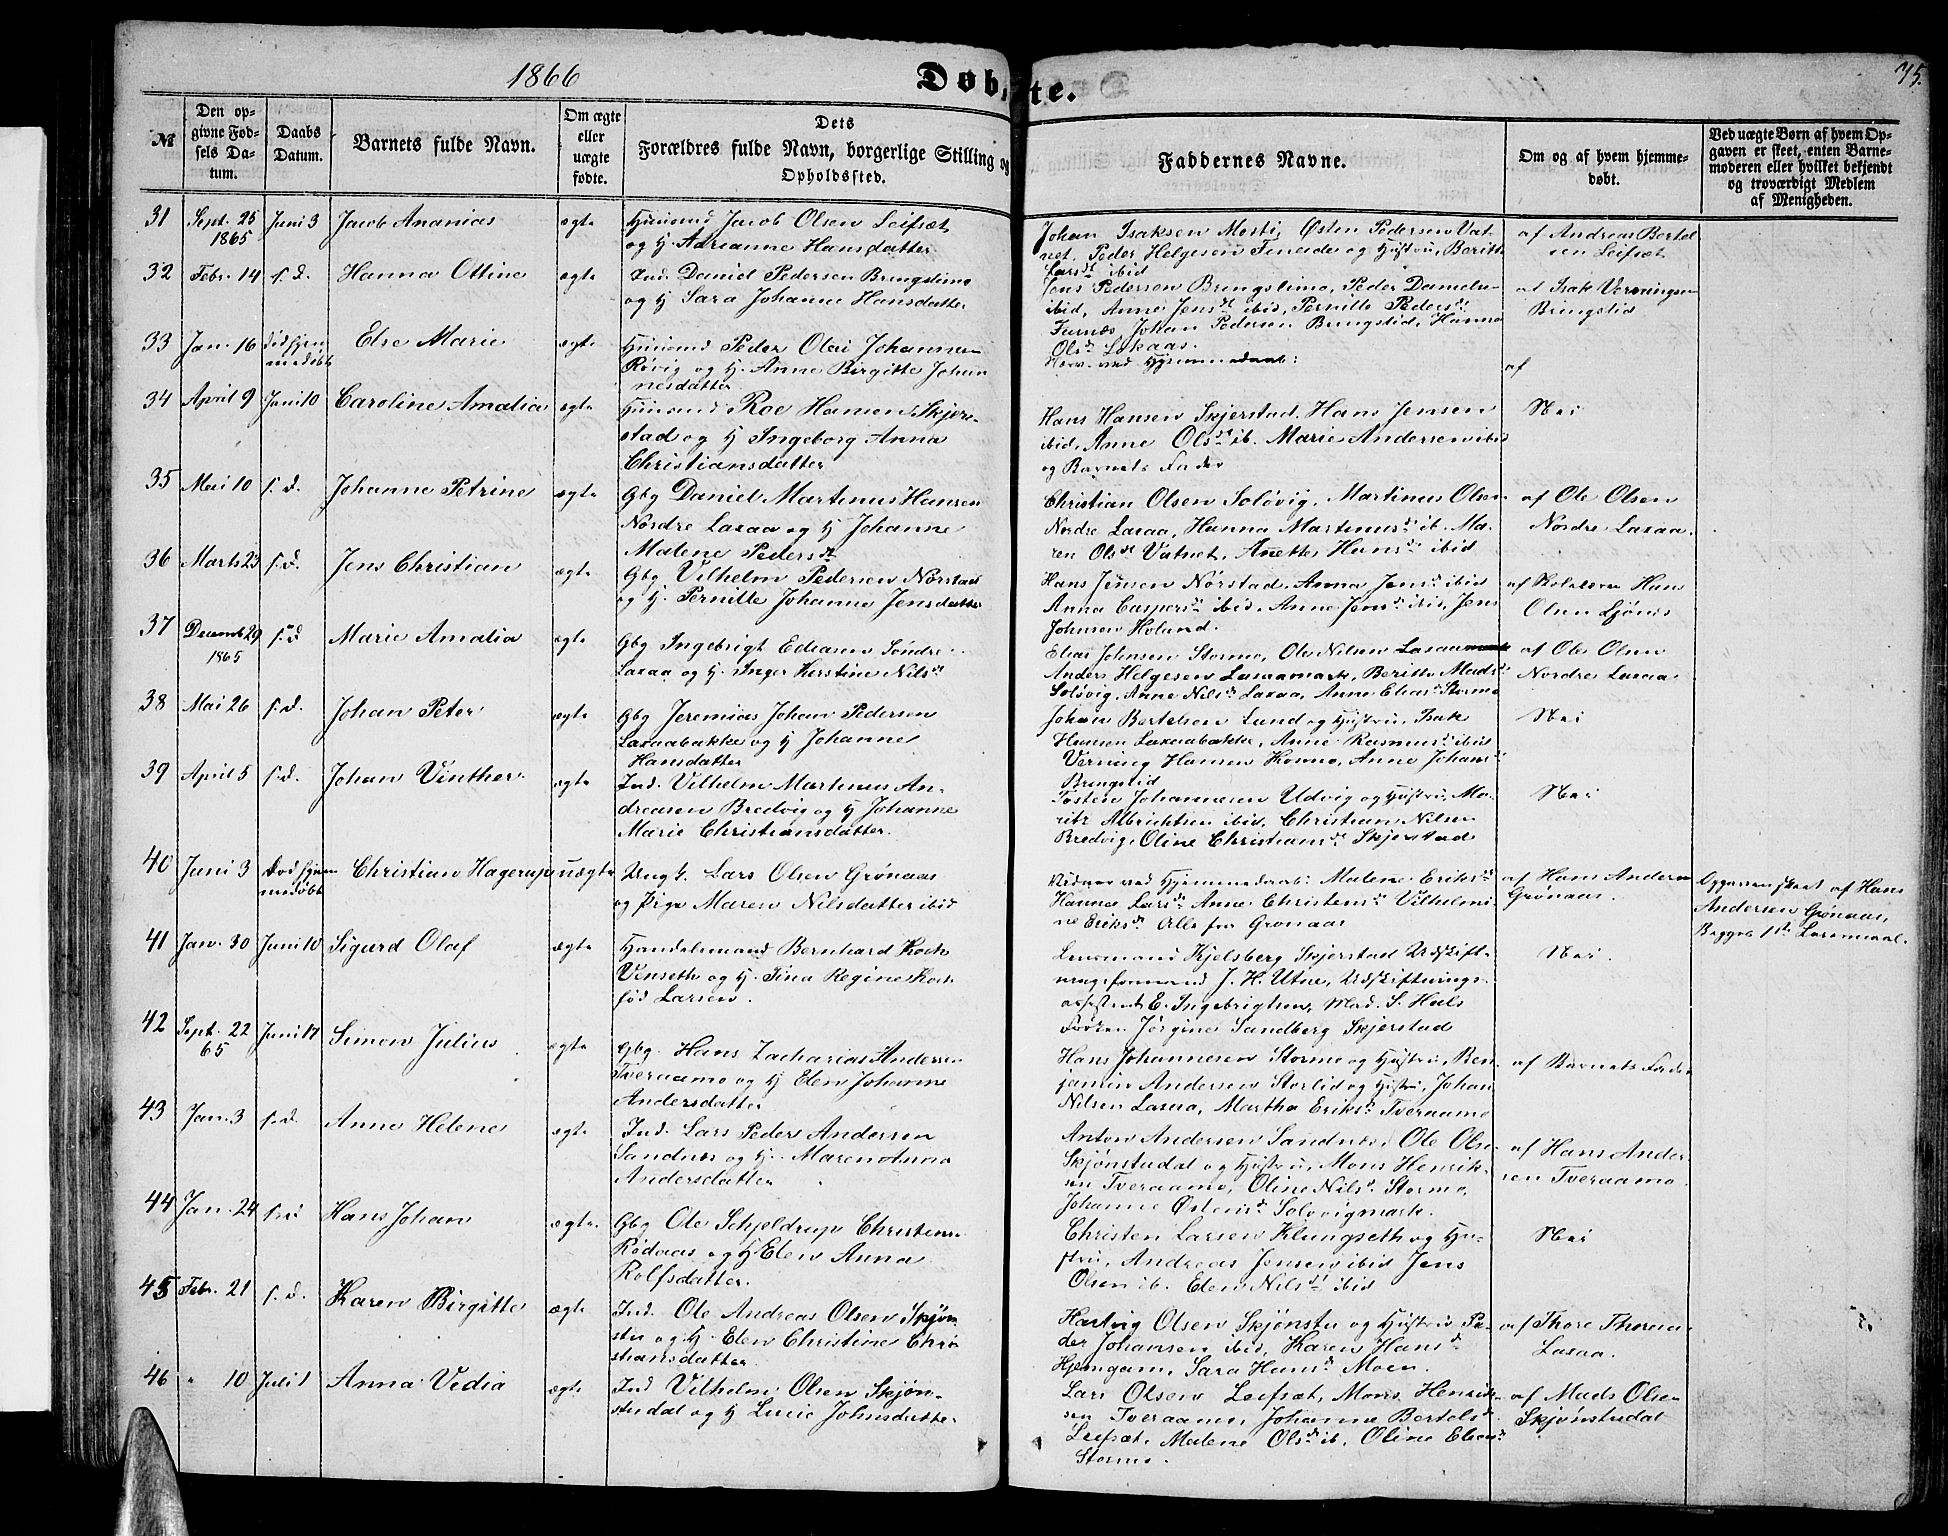 1866
Døbte.
75.
№
Den op-
givne Fød-
sels Da-
tum.
Daabs
Datum.
Barnets fulde Navn.
Om ægte
eller
uægte
fødte.
Dets
Forældres fulde Navn, borgerlige Stilling og
Opholdssted.
Faddernes Navne.
Om og af hvem hjemme-
døbt.
Ved uægte Børn af hvem Op-
gaven er skeet, enten Barne-
moderen eller hvilket bekjendt
og troværdigt Medlem
af Menigheden.
31 Sept. 25 1865 Juni 3 Jacob Ananias ægte
Huusmd Jacob Olsen Leifsæt
og H Adrianne Hansdatter
Johan Isaksen Mosti, Østen Pedersen Vat-
net, Peder Helgesen og Hustru, Berith
Larsd ibid
af Andreas Bertel
sen Leifsæt
32 Febr. 14 s. d. Hanna Ottine ægte
Ind. Daniel Pedersen Bringslimo
og H Sara Johanne Hansdatter
Jens Pedersen Bringslimo, Peder Daniels.
ibid, Anne Jensd ibid, Pernille Pedersd
Furnæs, Johan Pedersen Bringslid, Hanna
Olsd Løkaas.
af Isak Verningsen
Bringslid
33 Jan. 16 død hjem
medøbt Else Marie ægte
Huusmd Peder Olai Johannesen
Røvig og H. Anne Birgitte Johan
nesdatter
Hjemmedaab:
af
34 April 9 Juni 10 Caroline Amalia ægte
Huusmd Roe Hansen Skjer-
stad og H Ingeborg Anna
Christiansdatter
Hans Hansen Skjerstad, Hans Jensen
ibid, Anne Olsd ib. Marie Andersen ibid
og Barnets Fader
Nei
35 Mai 10 s. d. Johanne Petrine ægte
Gbg Daniel Martinus Hansen
Nordre Laxaa og H Johanne
Malene Pedersd
Christian Olsen Soløvig, Martinus Olsen
Nordre Laxaa, Hanna Martinusd ib. Ma-
ren Olsd Vatnet, Anette Hansd ibid
af Ole Olsen
Nordre Laxaa.
36 Marts 23 s. d. Jens Christian ægte
Gbg Vilhelm Pedersen Nørstad
og H. Pernille Johanne Jensdatter
Hans Jensen Nørstad, Anna Jensd ibid
Anna Caspersd ibid, Anne Jensd ibid, Jens
Johnsen Holund.
af Skolelærer Hans
Olsen Ljønes
37 Decemb 29 1865 s. d Marie Amalia ægte
Gbg Ingebrigt Eliasen Søndre
Laxaa og H. Inger Kerstine Nilsd
Elias Johnsen Stormo, Ole Nilsen Laxaamark
Anders Helgesen Laxaamark, Berith Madsd
Soløvig, Anne Nilsd Laxaa, Anne Eliasd Stormo
af Ole Olsen
Nordre Laxaa
38 Mai 26 s. d. Johan Peter ægte
Gbg Jeremias Johan Pedersen
Laxaabakke og H Johanne
Hansdatter
Johan Bertelsen Lund og Hustru, Isak
Hansen Laxaabakke, Anne Rasmusd ibid
Verning Hansen Konno, Anne Johansd
Bringslid
Nei
39 April 5 s. d. Johan Vinther ægte
Ind. Vilhelm Martinus An-
dreasen Bredvig og H Johanne
Marie Christiansdatter.
Tosten Johannesen Udvig og Hustru, Mo-
ritz Albrichtsen ibid, Christian Nilsen
Bredvig, Oline Christiansd Skjerstad
Nei
40 Juni 3 død hjem
medøbt Christian Hagerup uægte
Ungk. Lars Olsen Grønaas
og Pige Maren Nilsdatter ibid
Vidner ved Hjemmedaab: Malene Eriksd
Hanna Larsd Anne Christensd Vilhelmi-
ne Eriksd Alle fra Grønaas
af Hans Andersen
Grønaas.
Opgaven skeet af Hans
Andersen Grønaas,
Begges 1ste Leiermaal.
41 Jan. 30 Juni 10 Sigurd Olaf ægte
Handelsmand Bernhard Koch
Venseth og H. Tina Regine Koch
fød Larsen.
Lensmand Kjelsberg Skjerstad Udskift-
ningsformand J. H. Utne, Udskiftnings-
assistent E. Ingebrigtsen, Mad. S. Hals
Frøken Jørgine Sandberg Skjerstad
Nei.
42 Sept. 22 65 Juni 17 Simon Julius ægte
Gbg. Hans Zacharias Andersen
Tveraamo og H Elen Johanne
Andersdatter
Hans Johannesen Stormo og Hustru, Ben-
jamin Andersen Storlid og Hustru, Johan
Nilsen Laxaa, Martha Eriksd Tveraamo
af Barnets Fader
43 Jan. 3 s. d. Anne Helene ægte
Ind. Lars Peder Andersen
Sandnes og H. Maren Anna
Andersdatter
Anton Andersen Sandnes, Ole Olse
Skjønstudal og Hustru, Mons Henrik-
sen Tveraamo, Oline Nilsd Stormo,
Johanne Østensd Soløvigmark.
af Hans Ander
sen Tveraamo
44 Jan. 24 s. d Hans Johan ægte.
Gbg Ole Schjeldrup Christens.
Rødaas og H Elen Anna
Rolfsdatter.
Christen Larsen Klungseth og Hu-
stru, Andreas Jensen ibid Jens
Olsen ib. Elen Nilsd ibid
Nei
45 Febr. 21 s. d. Karen Birgitte ægte
Ind. Ole Andreas Olsen Skjøn
stu og H. Elen Christine Chri
stiansdatter.
Hartvig Olsen Skjønstu og Hustru Pe-
der Johansen ibid, Karen Hansd
Hjemgam, Sara Hansd Moen.
af Thore Thoresen
Laxaa.
46 " 10 Juli 1 Anna Vedia ægte
Ind Vilhelm Olsen Skjøn-
studal og H Lucie Johnsdatter
Lars Olsen Leifsæt, Mons Henrik-
sen Tveraamo, Johanne Bertelsd
Leifsæt, Malene Olsd ib, Oline Eliasd
Stormo.
af Mads Olsen
Skjønstudal